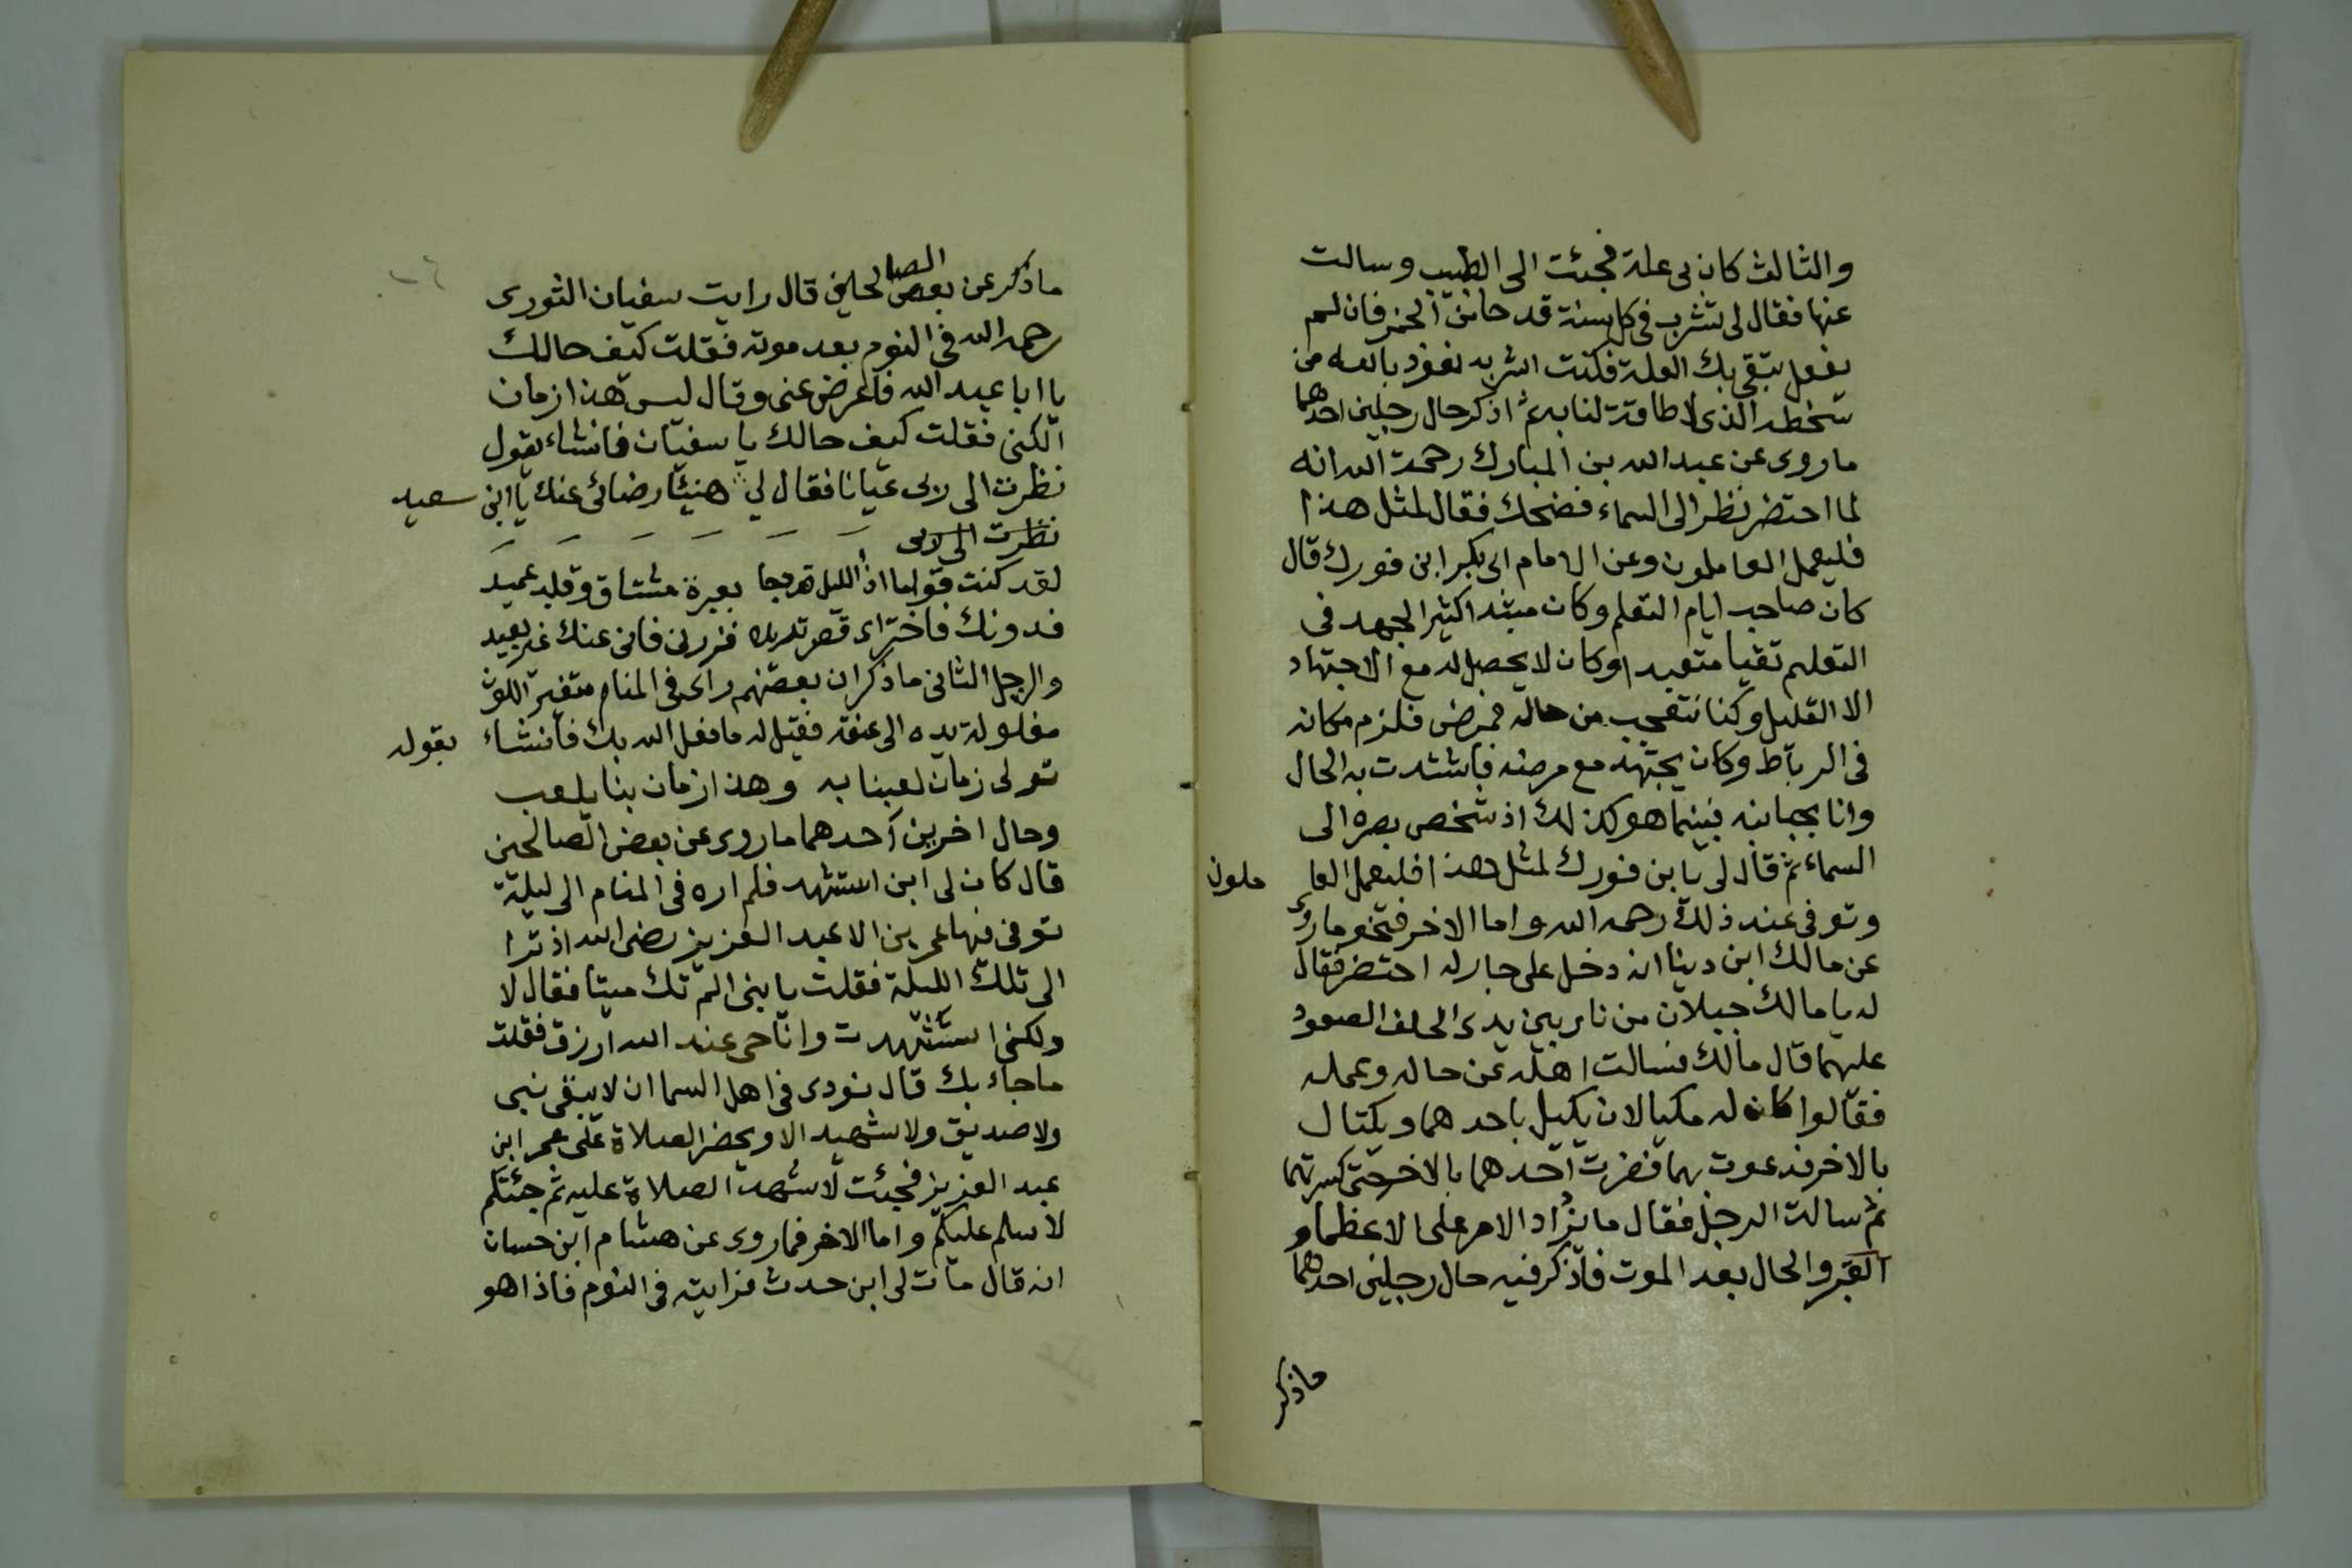 والثالث كان بى علة فجئت الى الطبيب وسالت
عنها فقال لى تشرب فى كل سنة قدحا من الخمر فان لم
تفعل تبقى بك العلة فكنت اشربه نعوذ بالله من
سخطه الذى لا طاقة لنا به ثم اذكر حال رجلين احدهما
ما روى عن عبد الله بن المبارك رحمة الله انه
لما احتضر نظر الى السماء فضحك فقال لمثل هذا
فليعمل العاملون وعن الامام ابى بكر ابن فورك قال
كان صاحب ايام التعلم وكان مبتدا كثير الجهد فى
التعلم تقيا متعبدا وكان لا يحصل له مع الاجتهاد
الا القليل وكنا نتعجب من حاله فمرض فلزم مكانه
فى الرباط وكان يجتهد مع مرضه فاشتدت به الحال
وانا بجانبه فبينما هو كذلك اذ شخص بصره الى
السماء ثم قال لى يا بن فورك لمثل هذا فليعمل العا ملون
وتوفى عند ذلك رحمه الله واما الاخر فنحو ما روى
عن مالك ابن دينا انه دخل على جار له احتضر فقال
له يا مالك جبلان من نار بين يدى اكلف الصعود
عليهما قال مالك فسالت اهله عن حاله وعمله
فقالوا كان له مكيالان يكيل باحدهما ويكتال
بالاخر فدعوت بهما فضربت احدهما بالاخر حتى كسرتهما
ثم سالت الرجل فقال ما يزاد الامر على الا عظما و
القبر والحال بعد الموت فاذكر فيه حال رجلين احدهما
ماذكر
ماذكر عن بعض الصالحين قال رايت سفيان الثورى
رحمه الله فى النوم بعد موته فقلت كيف حالك
يا ابا عبد الله فاعرض عنى وقال ليس هذا زمان
الكنى فقلت كيف حالك يا سفيان فانشاء يقول
نظرت الى ربى عيانا فقال لي هنيئا رضائى عنك يا ابن سعيد
نظرت الى ربى
لقد كنت قواما اذا الليل قد دجا بعبرة مشتاق وقلب عميد
فدونك فاختر اى قصر تريده فزرنى فانى عنك غير بعيد
والرجل الثانى ما ذكر ان بعضهم راى فى المنام متغير اللون
مغلولة يده الى عنقه فقيل له ما فعل الله بك فانشاء يقول
تولى زمان لعبنا به وهذا زمان بنا يلعب
وحال اخرين احدهما ما روى عن بعض الصالحين
قال كان لى ابن استشهد فلم اره فى المنام الى ليلة
توفى فيها عمر بن الا عبد العزيز رضى الله اذ ترا
الى تلك الليلة فقلت يا بنى الم تك ميتا فقال لا
ولكنى استشهدت وانا حى عند الله ارزق فقلت
ما جاء بك قال نودى فى اهل السما ان لا يبقى نبى
ولا صديق ولا شهيد الا ويحضر الصلاة على عمر ابن
عبد العزيز فجئت لاشهد الصلاة عليه ثم جئتكم
لاسلم عليكم واما الاخر فما روى عن هشام ابن حسان
انه قال مات لى ابن حدث فرايته فى النوم فاذا هو